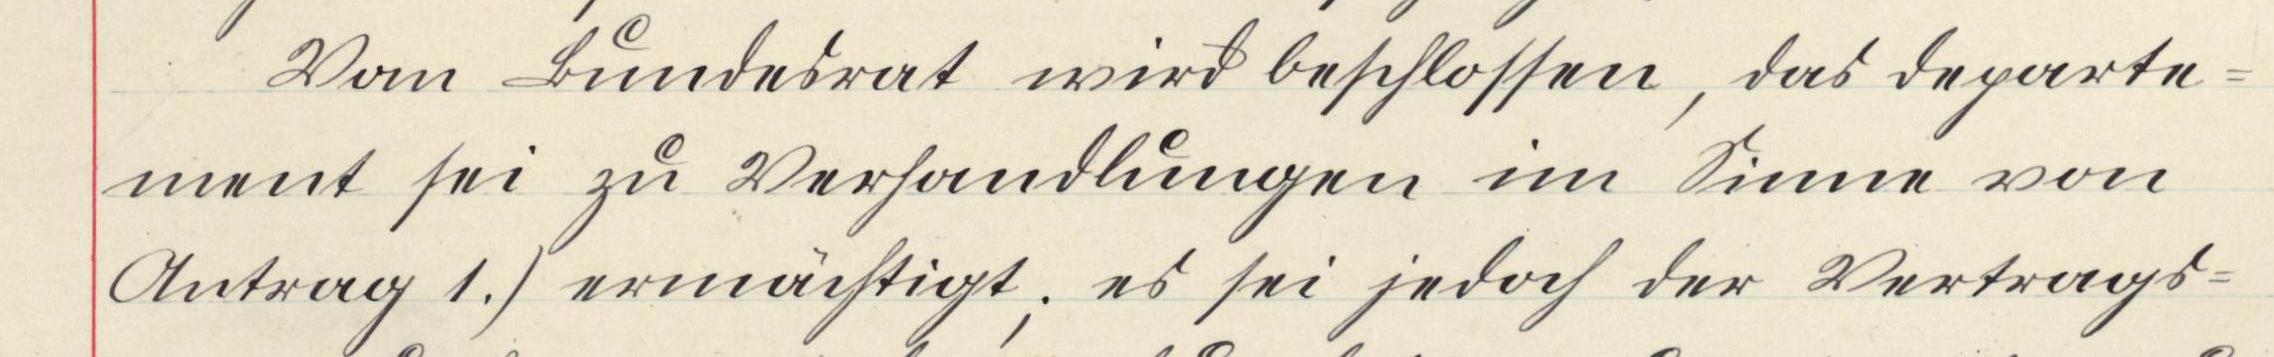 Vom Bundesrat wird beschlossen, das Departe=
ment sei zu Verhandlungen im Sinne von
Antrag 1.) ermächtigt; es sei jedoch der Vertrags=